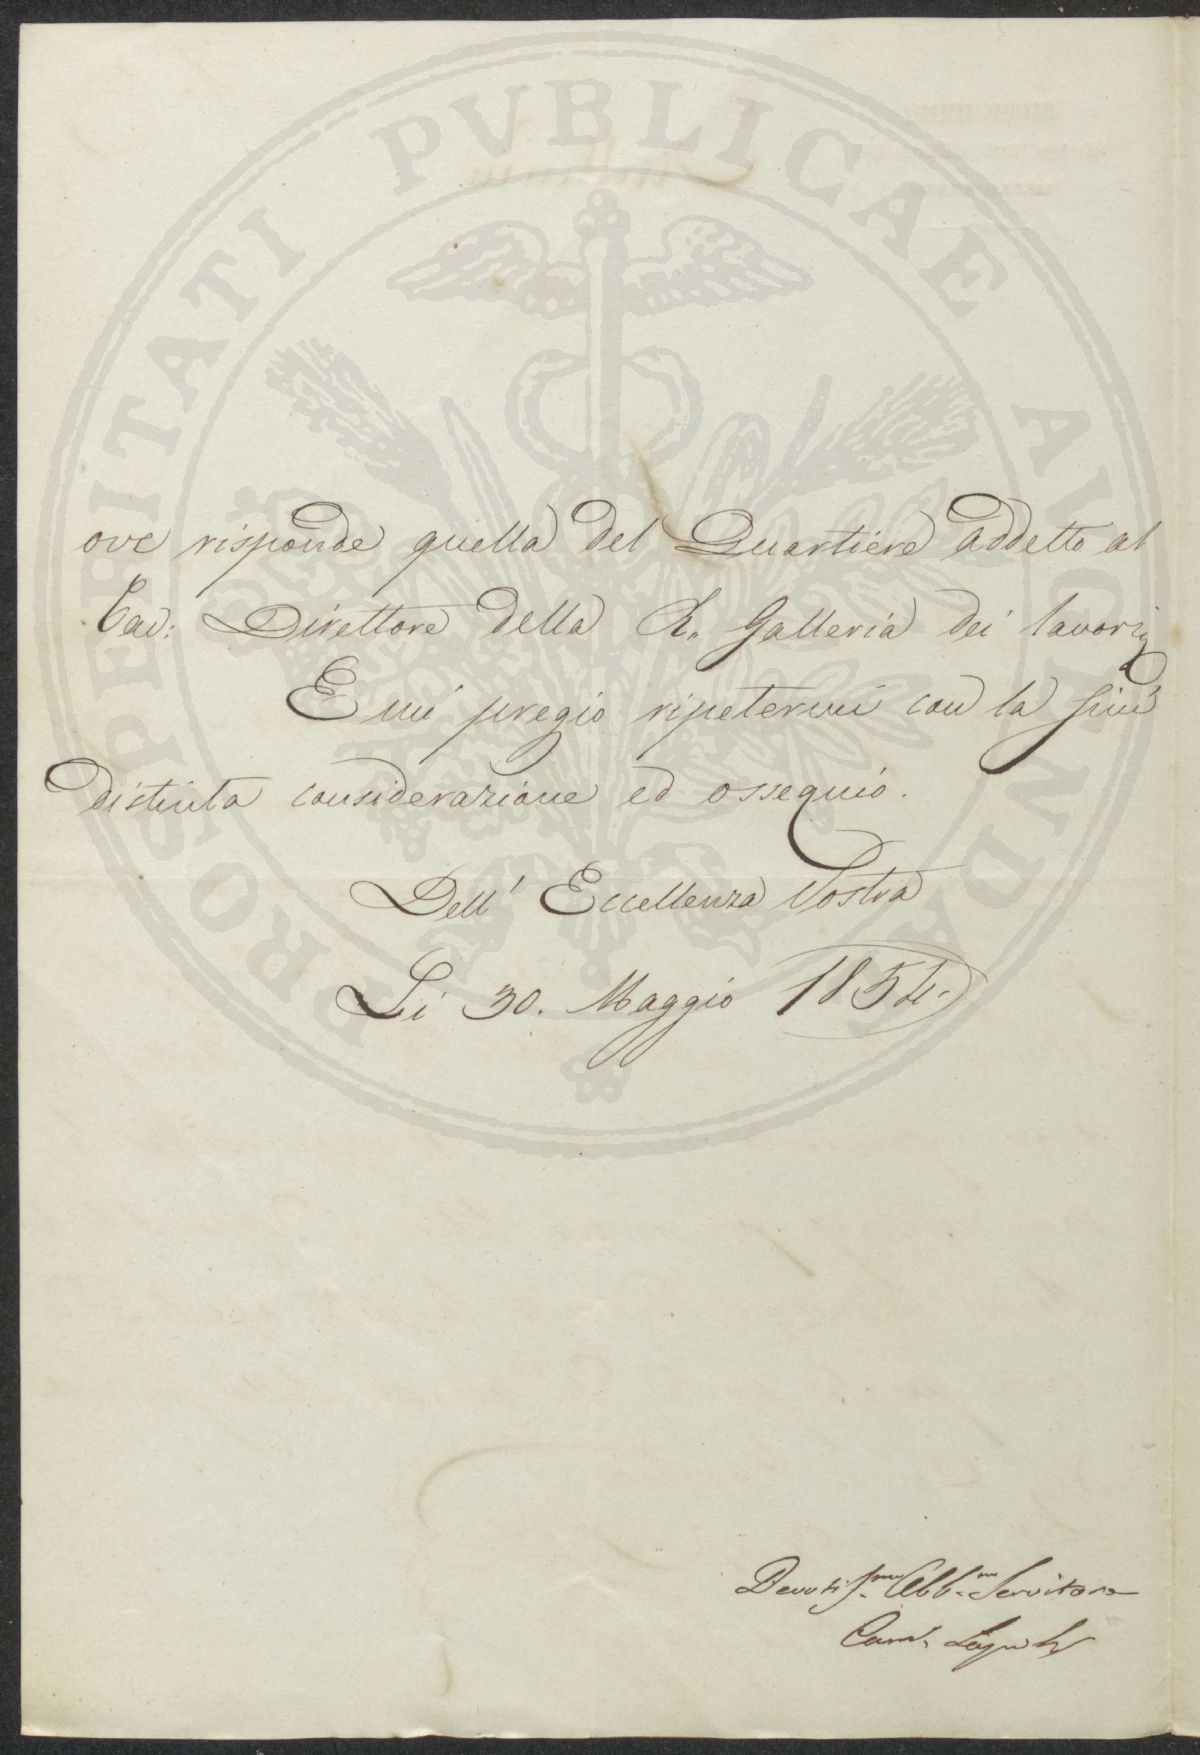 PROSPERITATI PVBLICAE AVGENDAE
ove risponde quella del Quartiere addetto al
Cav: Direttore della R. Galleria dei lavori
E mi pregio ripetermi con la più
distinta considerazione ed ossequio.
Dell' Eccellenza Vostra
Li 30. Maggio 1854.
Devotiss.mo Obb.mo Servitore